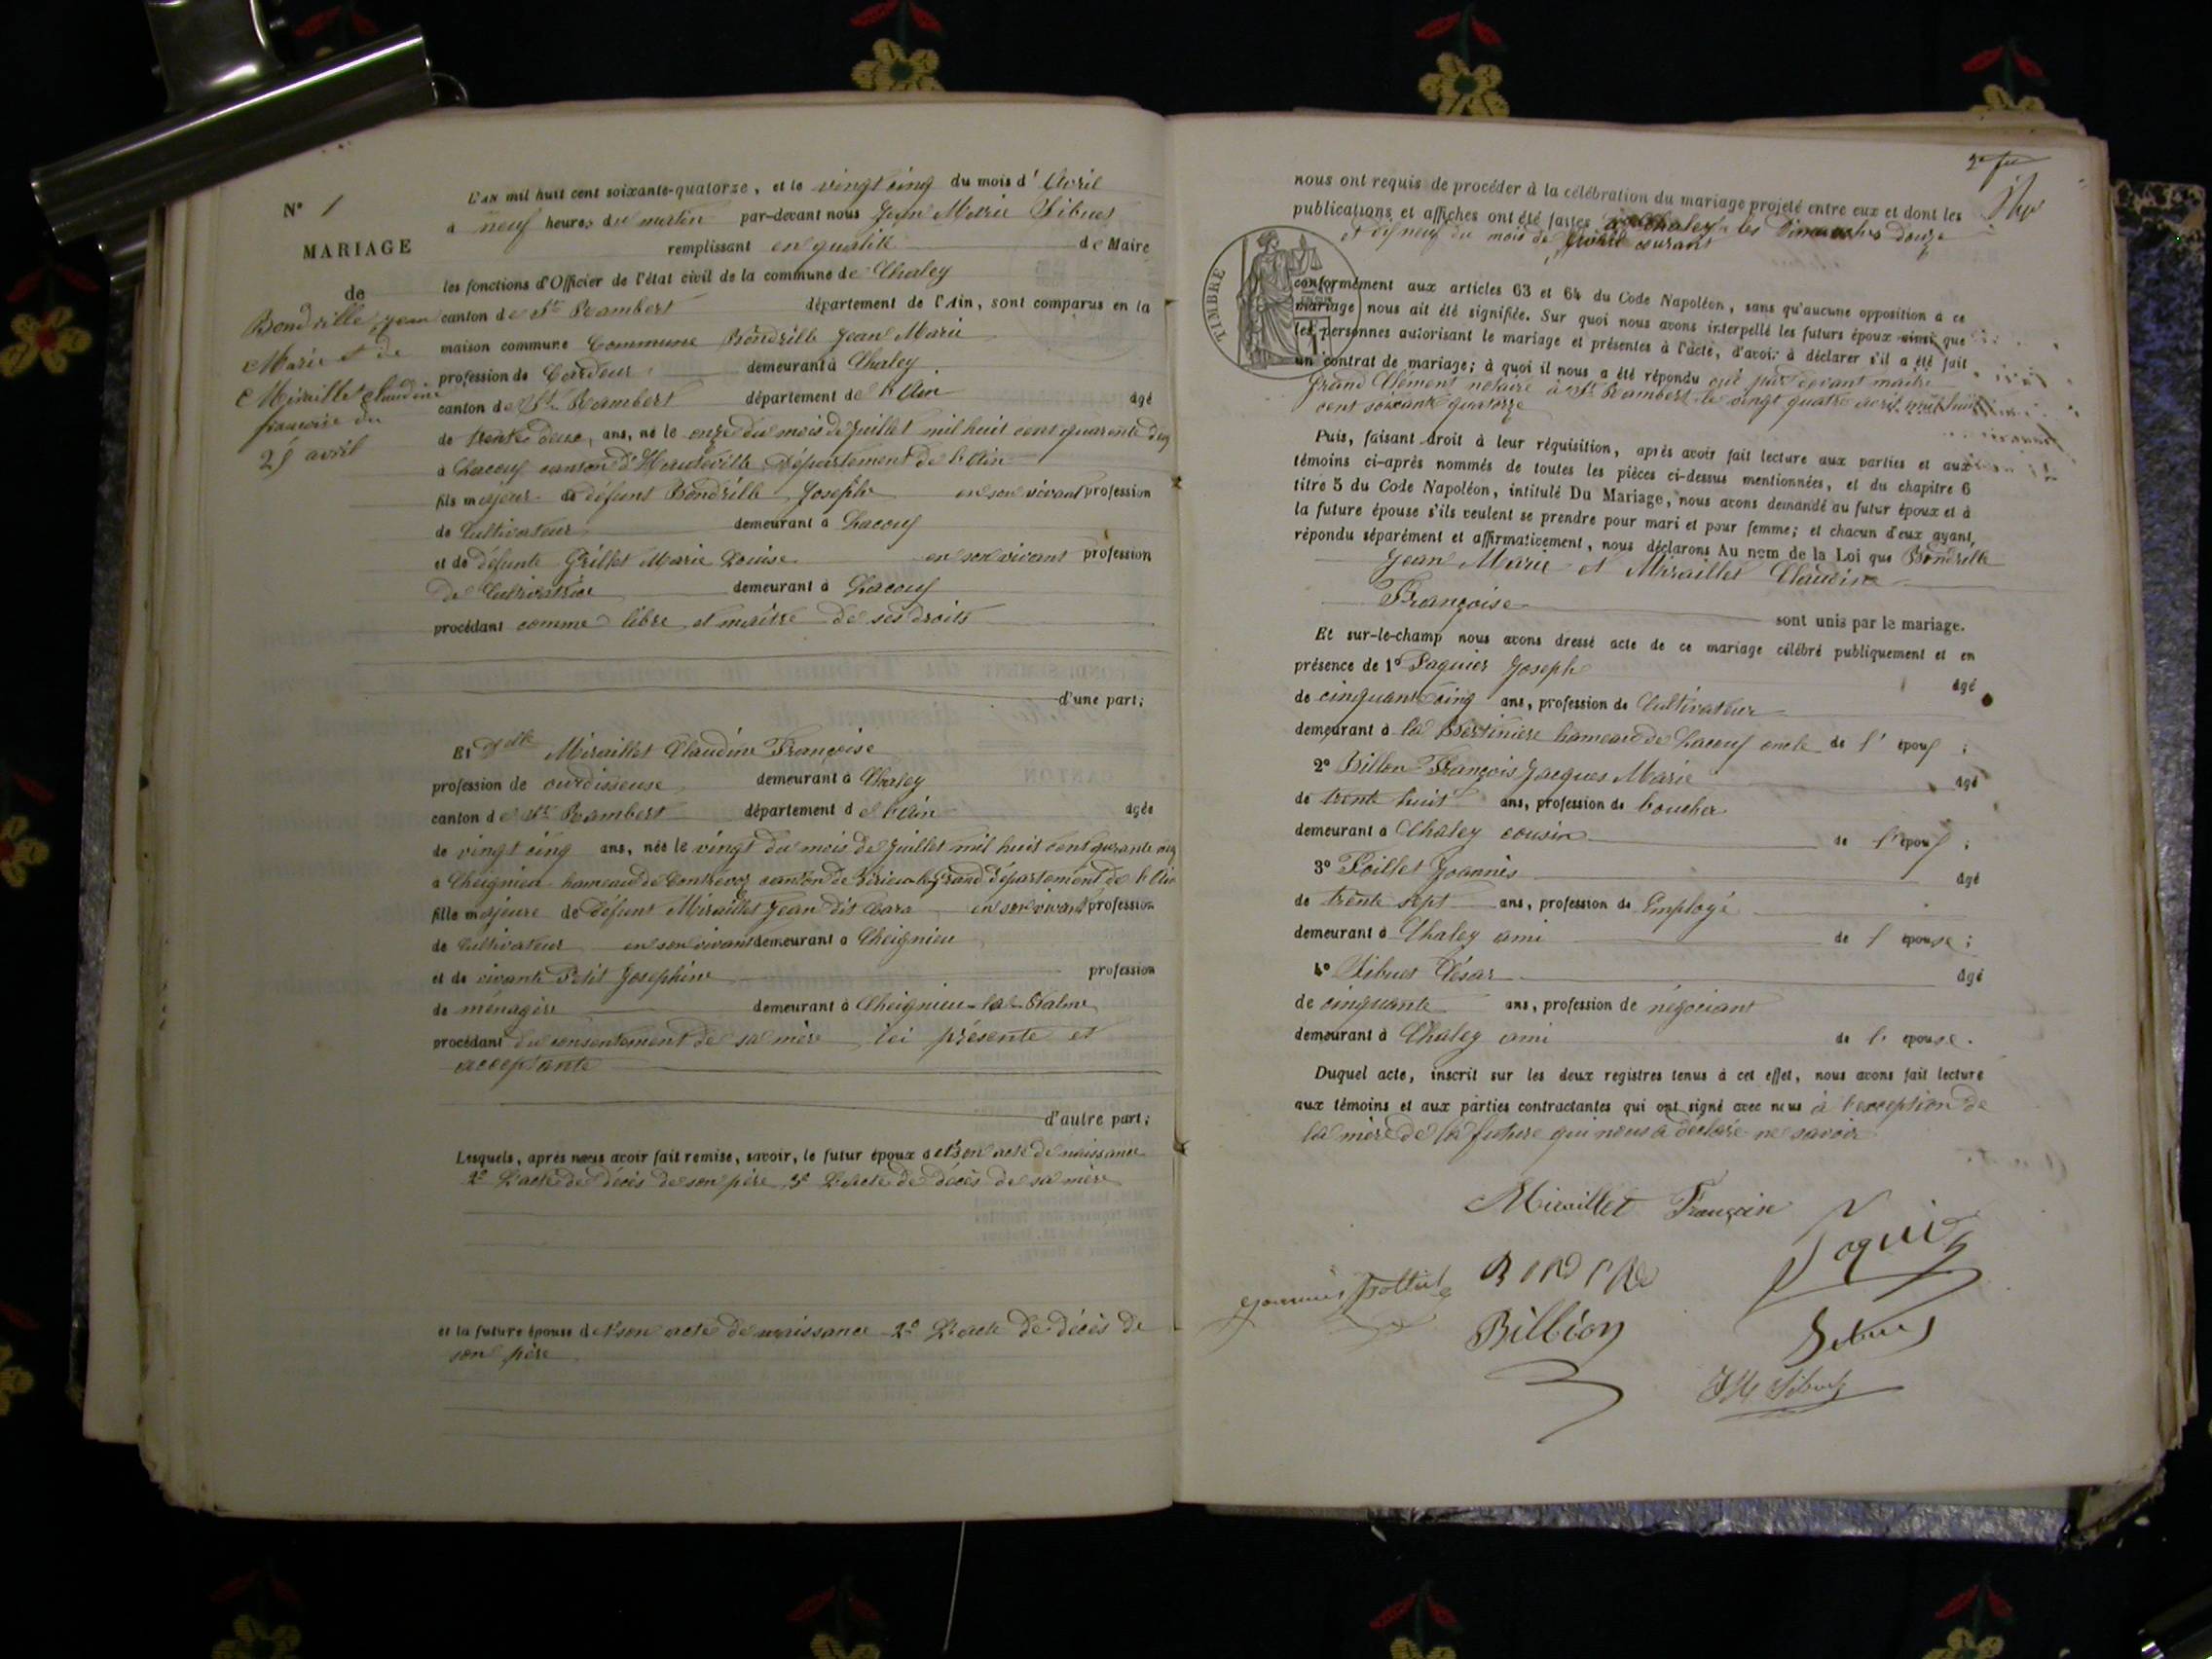 N° 1
MARIAGE
de
Bondrille Jean
Marie et de
Miraillet Claudine
françoise du
25 avril
L'AN mil huit cent soixante-quatorze, et le vingt cinq du mois d'Avril
à neuf heures du matin par-devant nous Jean Marie Sibuet
remplissant en qualité de Maire
les fonctions d'Officier de l'état civil de la commune de Chaley
canton de St Rambert département de l'Ain, sont comparus en la
maison commune Commune Bondrille Jean Marie
profession de Cardeur demeurant à Chaley
canton de St Rambert département de l'Ain âgé
de trente deux, ans, né le onze du mois de Juillet mil huit cent quarante deux
à Lacoux canton d'Hauteville Département de l'Ain
fils majeur de défunt Bondrille Joseph en son vivant profession
de Cultivateur demeurant à Lacoux
et de défunte Grillet Marie Louise en son vivant profession
De Cultivatrice demeurant à Lacoux
procédant comme libre et maître de ses droits
d'une part;
Et Delle Miraillet Claudine Françoise
profession de ourdisseuse demeurant à Chaley
canton de St Rambert département de l'Ain âgée
de vingt cinq ans, née le vingt du mois de Juillet mil huit cent quarante neuf
à Cheignieu hameau de Contrevoz canton de Virieu le Grand département de l'Ain
fille majeure de défunt Miraillet Jean dit en son vivant profession
de Cultivateur en son vivant demeurant à Cheignieu
et de vivante Petit Josephine profession
de ménagère demeurant à Cheignieu-la-Balme
procédant du consentement de sa mère ici présente et
acceptante
d'autre part;
Lesquels, après nous avoir fait remise, savoir, le futur époux de 1° son acte de naissance
2° L'acte de décès de son père 3° L'acte de décès de sa mère
et la future épouse de 1° son acte de naissance 2° L'acte de décès de
son père
nous ont requis de procéder à la célébration du mariage projeté entre eux et dont les
publications et affiches ont été faites à Chaley les Dimanches douze
et dix neuf du mois de courant
TIMBRE
conformément aux articles 63 et 64 du Code Napoléon, sans qu'aucune opposition à ce
mariage nous ait été signifiée. Sur quoi nous avons interpellé les futurs époux ainsi que
les personnes autorisant le mariage et présentes à l'acte, d'avoir à déclarer s'il a été fait
un contrat de mariage; à quoi il nous a été répondu oui par devant maître
Grand Clément notaire à St Rambert le vingt quatre avril mil huit
cent soixante quatorze
Puis, faisant droit à leur réquisition, après avoir fait lecture aux parties et aux
témoins ci-après nommés de toutes les pièces ci-dessus mentionnées, et du chapitre 6
titre 5 du Code Napoléon, intitulé Du Mariage, nous avons demandé au futur époux et à
la future épouse s'ils veulent se prendre pour mari et pour femme; et chacun d'eux ayant,
répondu séparément et affirmativement, nous déclarons Au nom de la Loi que Bondrille
Jean Marie et Miraillet Claudine
Françoise
sont unis par le mariage.
Et sur-le-champ nous avons dressé acte de ce mariage célébré publiquement et en
présence de 1° Paquier Joseph âgé
de cinquante cinq ans, profession de Cultivateur
demeurant à la Bertinière hameau de Lacoux oncle de l'époux;
2° Billon François Jacques Marie âgé
de trente huit ans, profession de boucher
demeurant à Chaley cousin de l'époux;
3° Poillet Joannès âgé
de trente sept ans, profession de Employé
demeurant à Chaley ami de l'épouse;
4° Sibuet César âgé
de cinquante ans, profession de négociant
demeurant à Chaley ami de l'épouse.
Duquel acte, inscrit sur les deux registres tenus à cet effet, nous avons fait lecture
aux témoins et aux parties contractantes qui ont signé avec nous à l'exception de
la mère de la future qui nous a déclaré ne savoir
Miraillet Françoise
Paquier
Billion
Sibuet
JM Sibuet